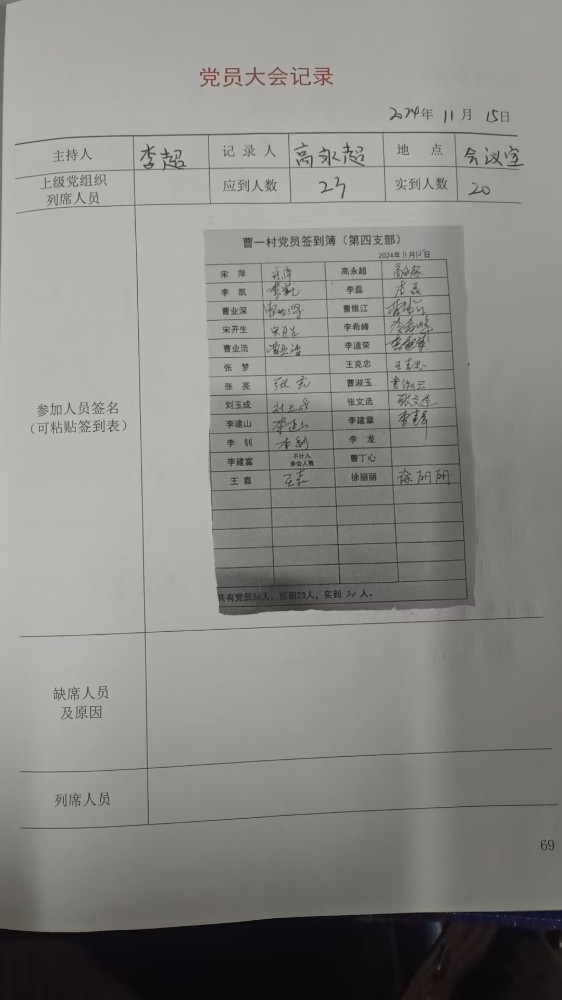 党员大会记录
2024年 11月 15日
主持人 李超 记录人 高永超 地点 会议室
上级党组织列席人员 应到人数 23 实到人数 20
参加人员签名
（可粘贴签到表）
曹一村党员签到簿（第四支部）
2024年11月15日
宋萍 宋萍 高永超 高永超
李凯 李凯 李磊 李磊
曹业深 曹业深 曹维江 曹维江
宋开生 宋开生 李希峰 李希峰
曹业浩 曹业浩 李道荣 李道荣
张梦 王克忠 王克忠
张亮 张亮 曹淑玉 曹淑玉
刘玉成 刘玉成 张文选 张文选
李建山 李建山 李建章
李钊 李钊 李龙
李建富 不计入参会人数 曹丁心
王嘉 王嘉 徐丽丽 徐丽丽
共有党员24人，应到23人，实到 20 人。
缺席人员
及原因
列席人员
69